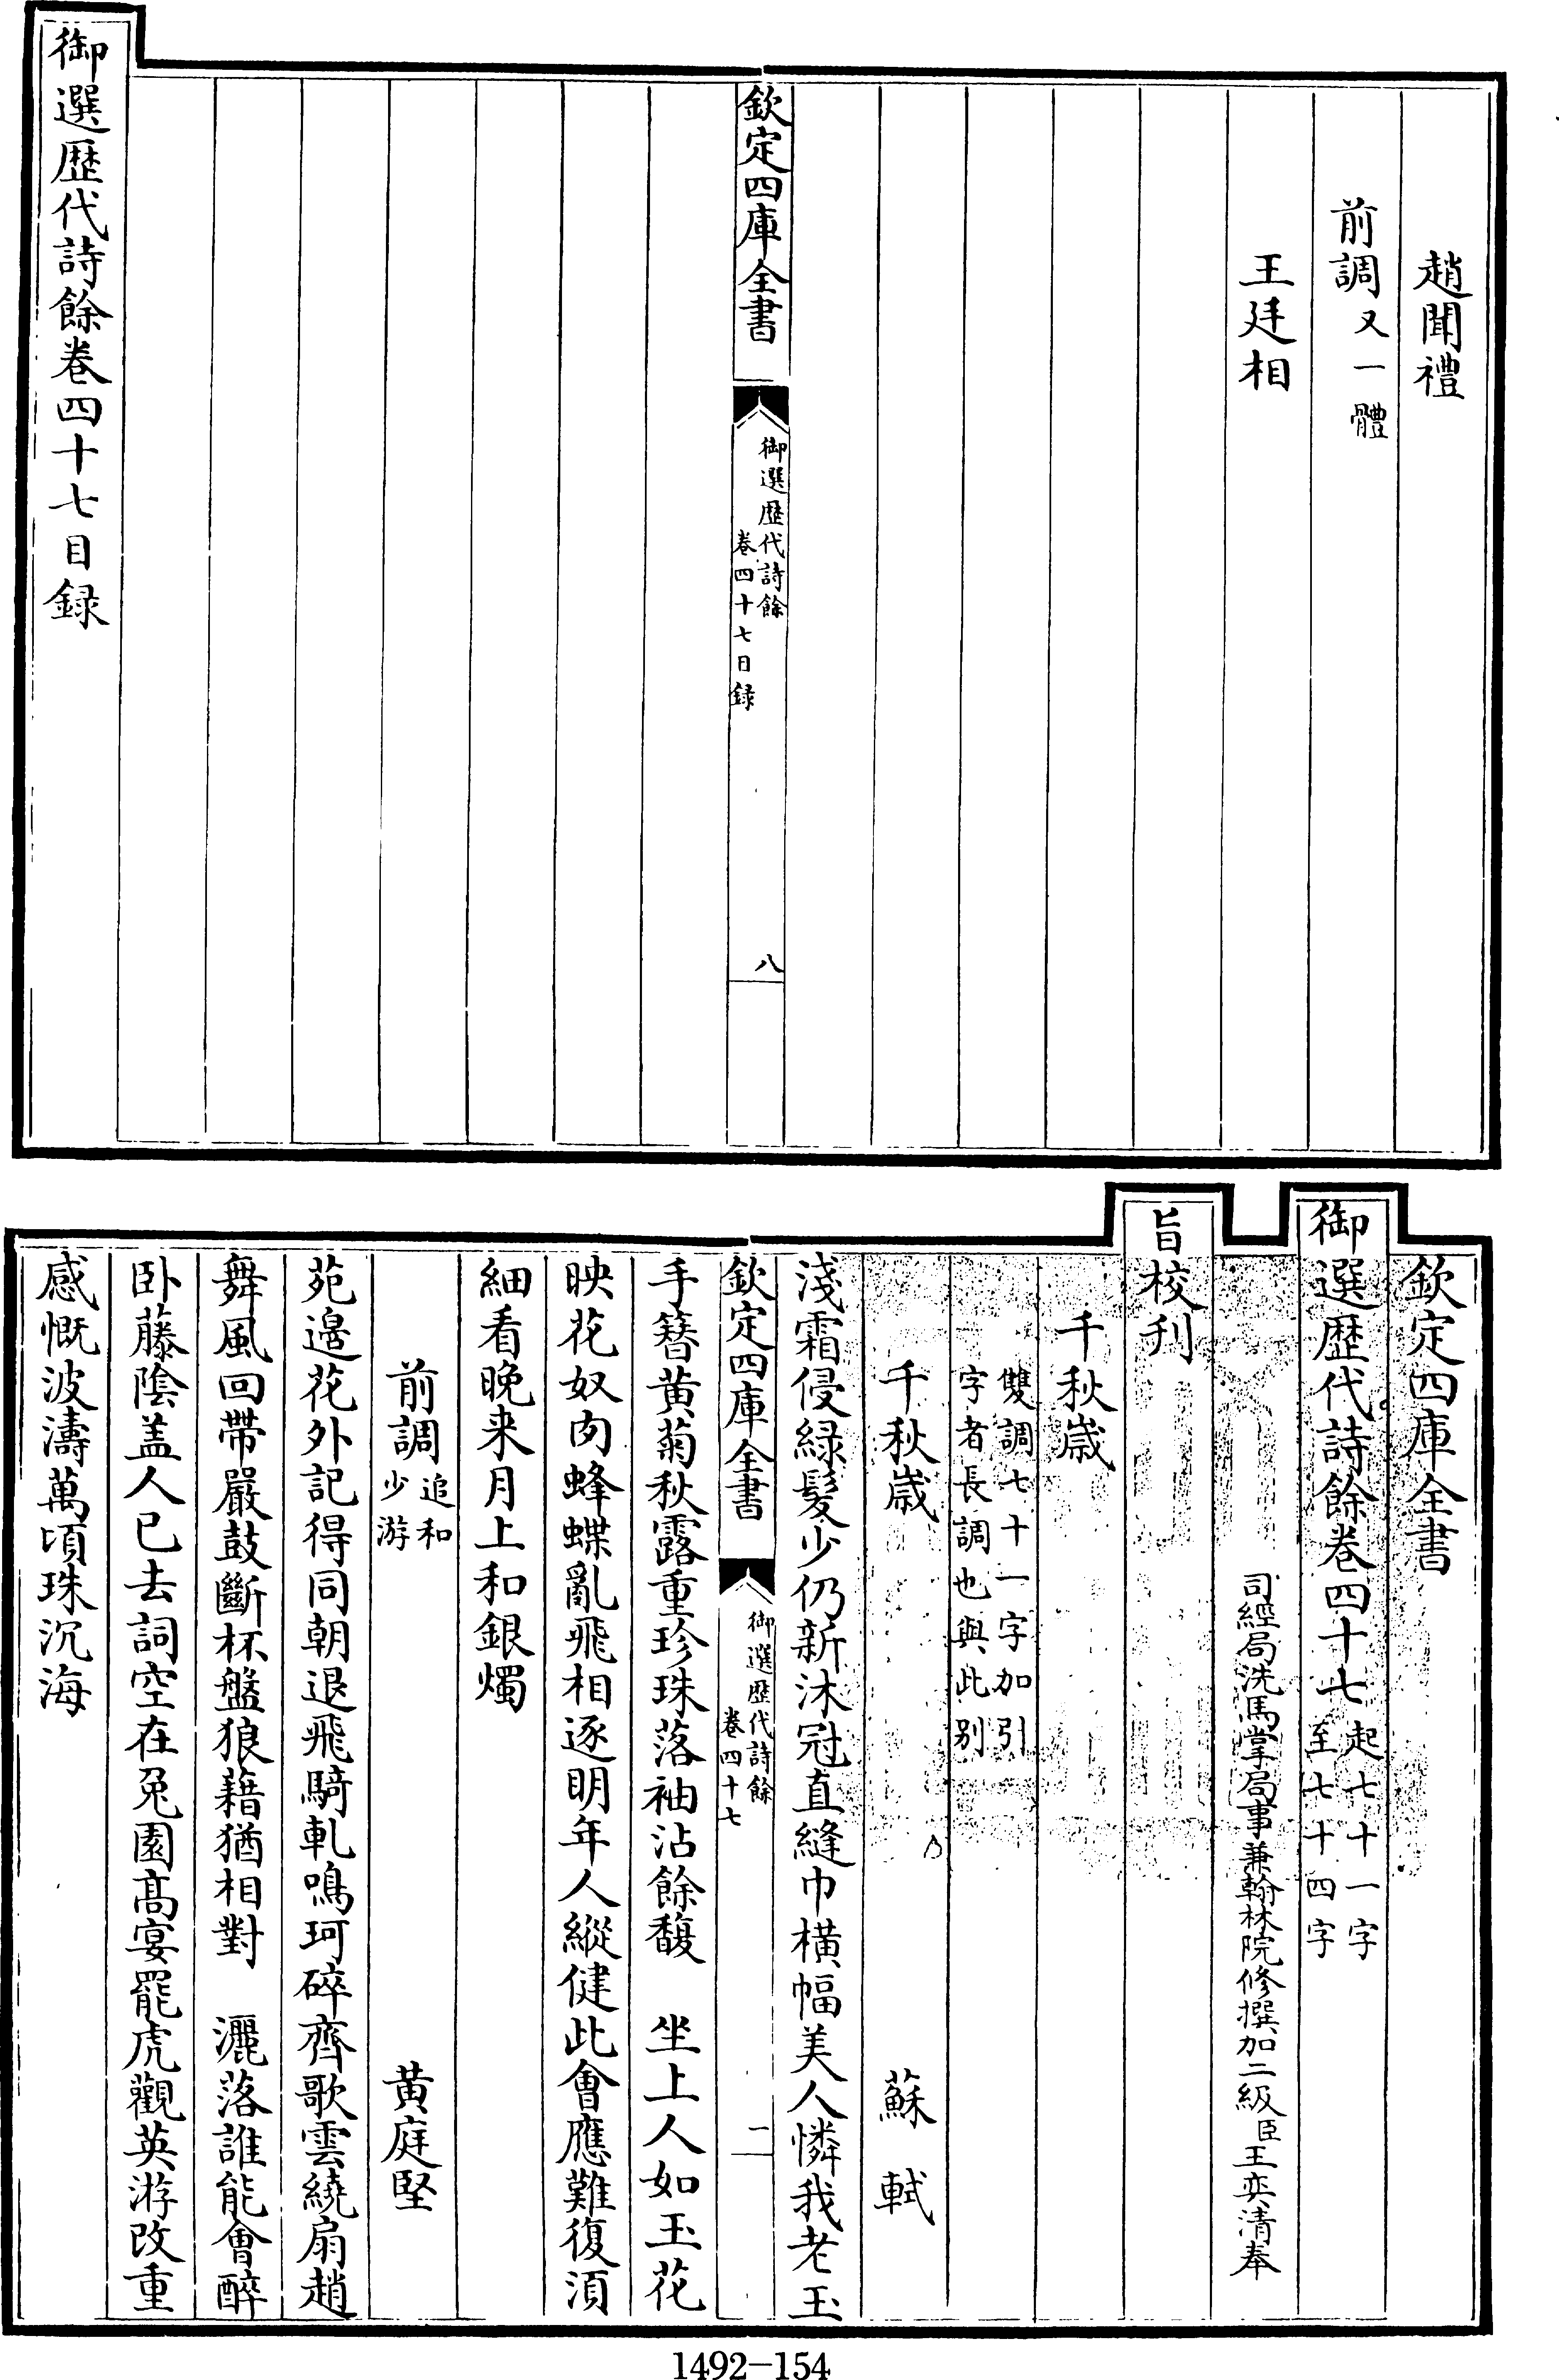 趙聞禮
前調又一體
王廷相
欽定四庫全書
御選歷代詩餘
卷四十七目録
八
御選歷代詩餘卷四十七目録
欽定四庫全書
御選歷代詩餘卷四十七起七十一字
至七十四字
司經局洗馬掌局事兼翰林院修撰加二級臣王奕清奉
旨校刋
千秋歲
雙調七十一字加引
字者長調也與此别
千秋歲 蘇軾
淺霜侵緑髮少仍新沐冠直縫巾橫幅美人憐我老玉
欽定四庫全書
御選歷代詩餘
卷四十七
一
手簪黄菊秋露重珍珠落袖沾餘馥 坐上人如玉花
映花奴肉蜂蝶亂飛相逐明年人縱健此會應難復須
細看晚来月上和銀燭
前調追和
少游 黄庭堅
苑邊花外記得同朝退飛騎軋鳴珂碎齊歌雲繞扇趙
舞風回帶嚴鼓斷杯盤狼藉猶相對 灑落誰能會醉
卧藤陰盖人已去詞空在兔園高宴罷虎觀英游改重
感慨波濤萬頃珠沉海
1492-154